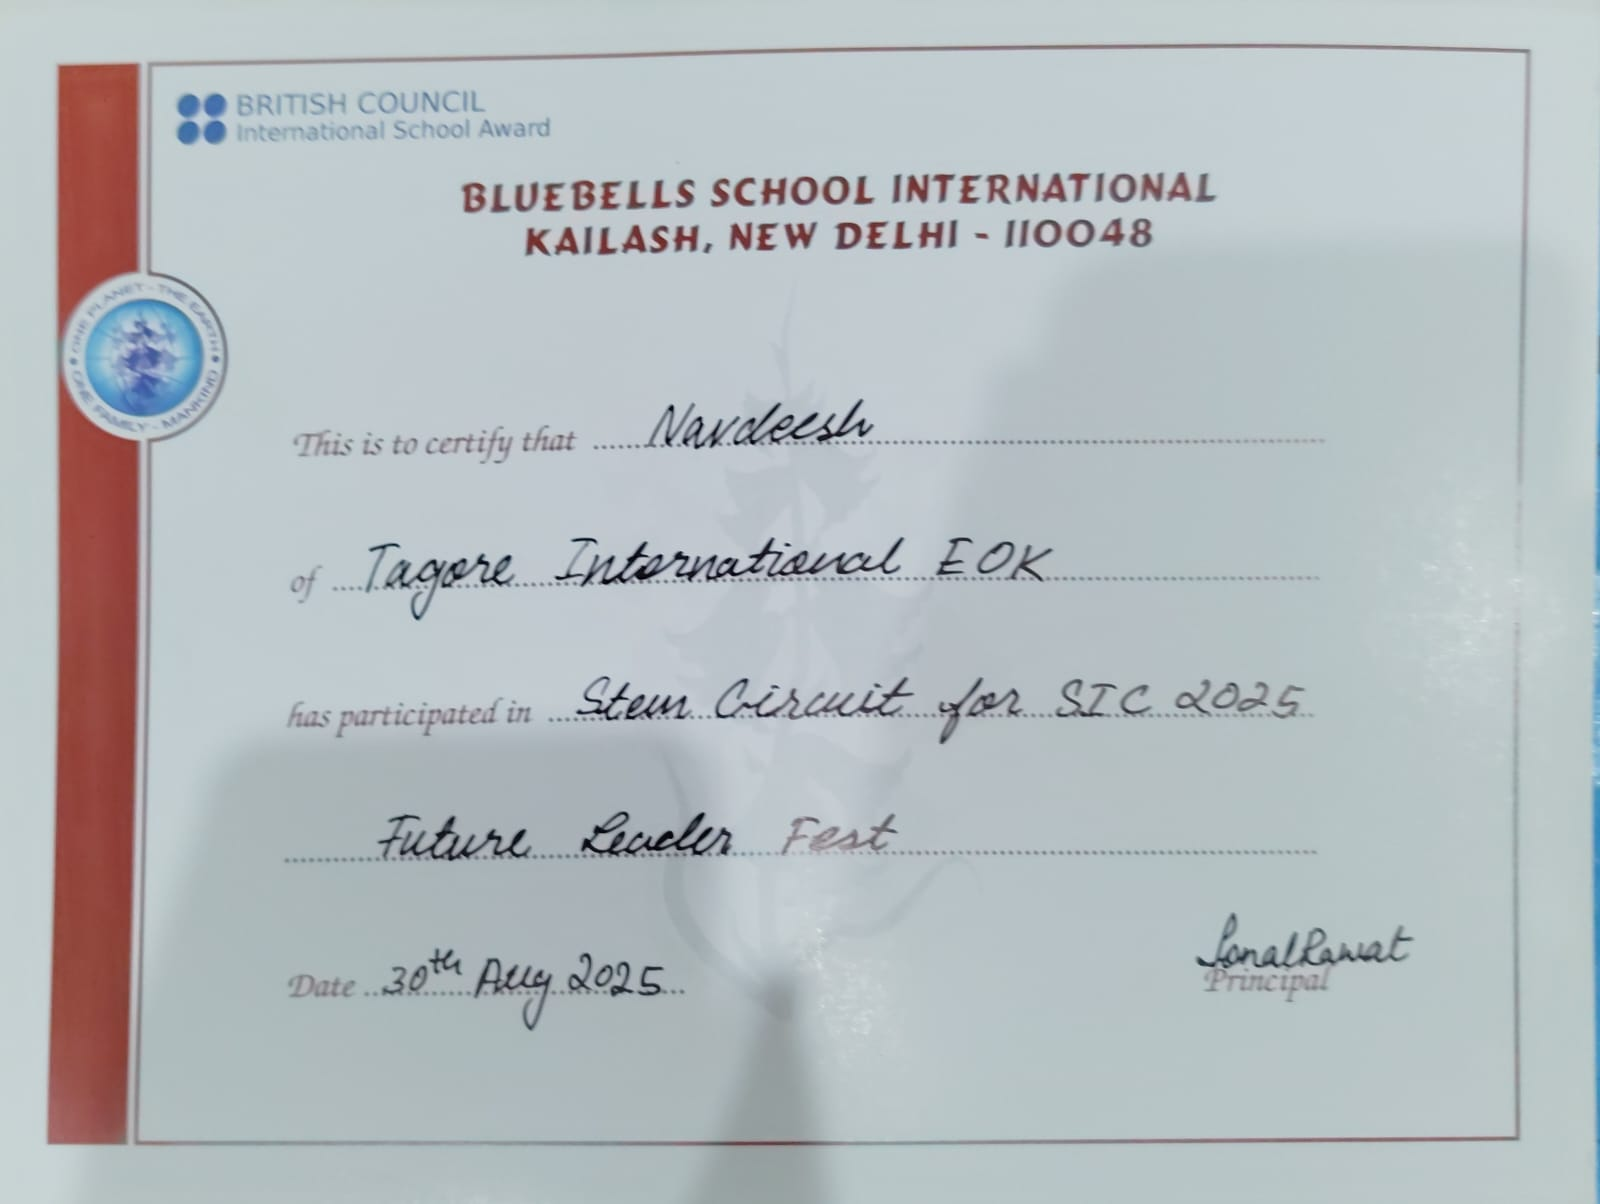 BRITISH COUNCIL
International School Award
BLUEBELLS SCHOOL INTERNATIONAL
KAILASH, NEW DELHI - 110048
ONE PLANET - THE EARTH • ONE FAMILY - MANKIND •
This is to certify that Navdeesh
of Tagore International EOK
has participated in Stem Circuit for SIC 2025
Future Leader Fest
Date 30th Aug 2025
Sonal Rawat
Principal